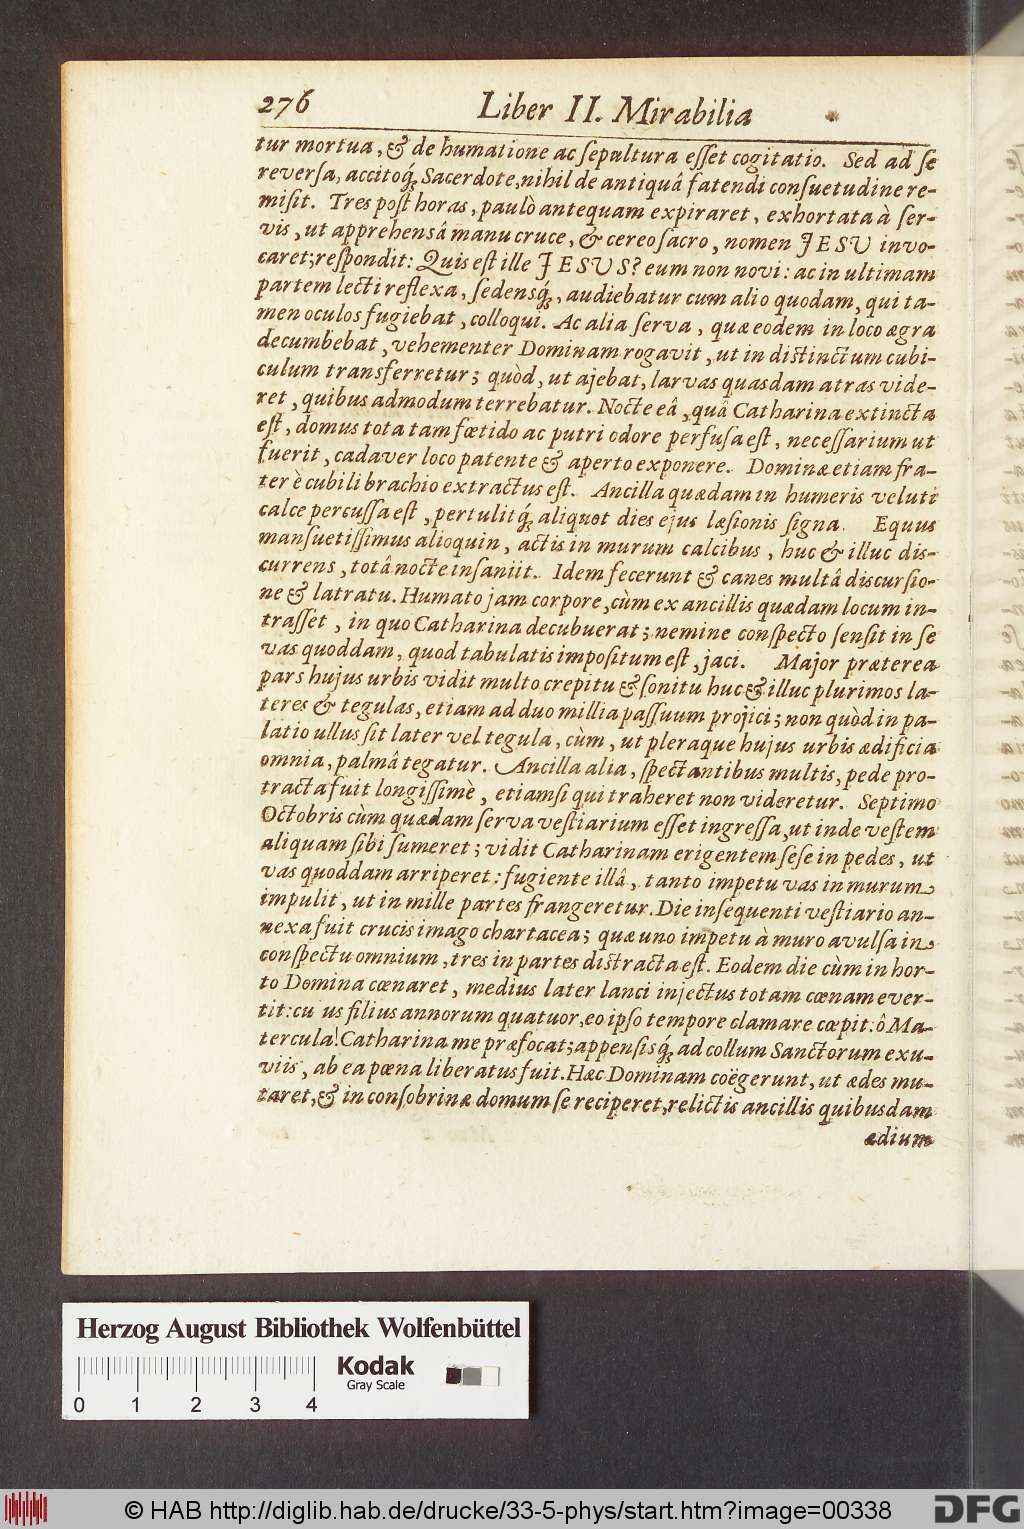 276 Liber II. Mirabilia
tur mortua, & de humatione ac ſepultura eſſet cogitatio. Sed ad ſe
reverſa, accitoq́; Sacerdote, nihil de antiquâ fatendi conſuetudine re-
miſit. Tres poſt horas, paulò antequam expiraret, exhortata à ſer-
vis, ut apprehensâ manu cruce, & cereo ſacro, nomen JESU invo-
caret; reſpondit: Quis eſt ille JESUS? eum non novi: ac in ultimam
partem lecti reflexa, ſedensq́;, audiebatur cum alio quodam, qui ta-
men oculos fugiebat, colloqui. Ac alia ſerva, quæ eodem in loco ægra
decumbebat, vehementer Dominam rogavit, ut in diſtinctum cubi-
culum transferretur; quòd, ut ajebat, larvas quasdam atras vide-
ret, quibus admodum terrebatur. Nocte eâ, quâ Catharina extincta
eſt, domus tota tam fœtido ac putri odore perfuſa eſt, neceſſarium ut
fuerit, cadaver loco patente & aperto exponere. Dominæ etiam fra-
ter è cubili brachio extractus eſt. Ancilla quædam in humeris veluti
calce percuſſa eſt, pertulitq́; aliquot dies ejus læſionis ſigna. Equus
manſuetiſſimus alioquin, actis in murum calcibus, huc & illuc dis-
currens, totâ nocte inſaniit. Idem fecerunt & canes multâ diſcurſio-
ne & latratu. Humato jam corpore, cùm ex ancillis quædam locum in-
traſſet, in quo Catharina decubuerat; nemine conſpecto ſenſit in ſe
vas quoddam, quod tabulatis impoſitum eſt, jaci. Major præterea
pars hujus urbis vidit multo crepitu & ſonitu huc & illuc plurimos la-
teres & tegulas, etiam ad duo millia paſſuum projici; non quòd in pa-
latio ullus ſit later vel tegula, cùm, ut pleraque hujus urbis ædificia
omnia, palmâ tegatur. Ancilla alia, ſpectantibus multis, pede pro-
tracta fuit longiſſimè, etiamſi qui traheret non videretur. Septimo
Octobris cùm quædam ſerva veſtiarium eſſet ingreſſa, ut inde veſtem
aliquam ſibi ſumeret; vidit Catharinam erigentem ſeſe in pedes, ut
vas quoddam arriperet: fugiente illâ, tanto impetu vas in murum
impulit, ut in mille partes frangeretur. Die inſequenti veſtiario an-
nexa fuit crucis imago chartacea; quæ uno impetu à muro avulſa in
conſpectu omnium, tres in partes diſtracta eſt. Eodem die cùm in hor-
to Domina cœnaret, medius later lanci injectus totam cœnam ever-
tit: cu us filius annorum quatuor, eo ipſo tempore clamare cœpit: ô Ma-
tercula! Catharina me præfocat; appenſisq́; ad collum Sanctorum exu-
viis, ab ea pœna liberatus fuit. Hæc Dominam coëgerunt, ut ædes mu-
taret, & in conſobrinæ domum ſe reciperet, relictis ancillis quibusdam
ædium
Herzog August Bibliothek Wolfenbüttel
Kodak
Gray Scale
0 1 2 3 4
© HAB http://diglib.hab.de/drucke/33-5-phys/start.htm?image=00338
DFG